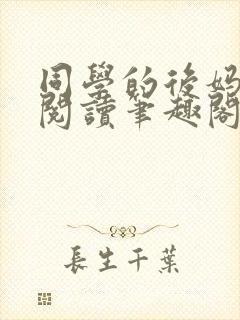 同學的後媽
閱讀筆趣閣
長生千葉